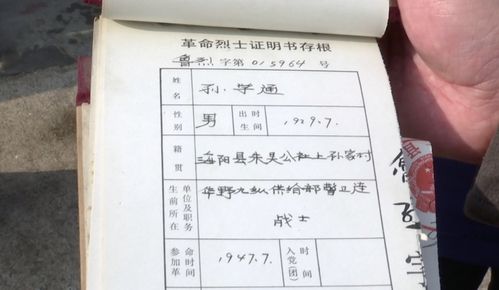 革命烈士证明书存根
鲁烈字第015964号
姓名 孙学通
性别 男 出生时间 1929.7.
籍贯 海阳县朱吴公社上孙家村
生前所在单位及职务 华野九纵供给部警卫连
战士
参加革命时间 1947.7. 入党(团)时间